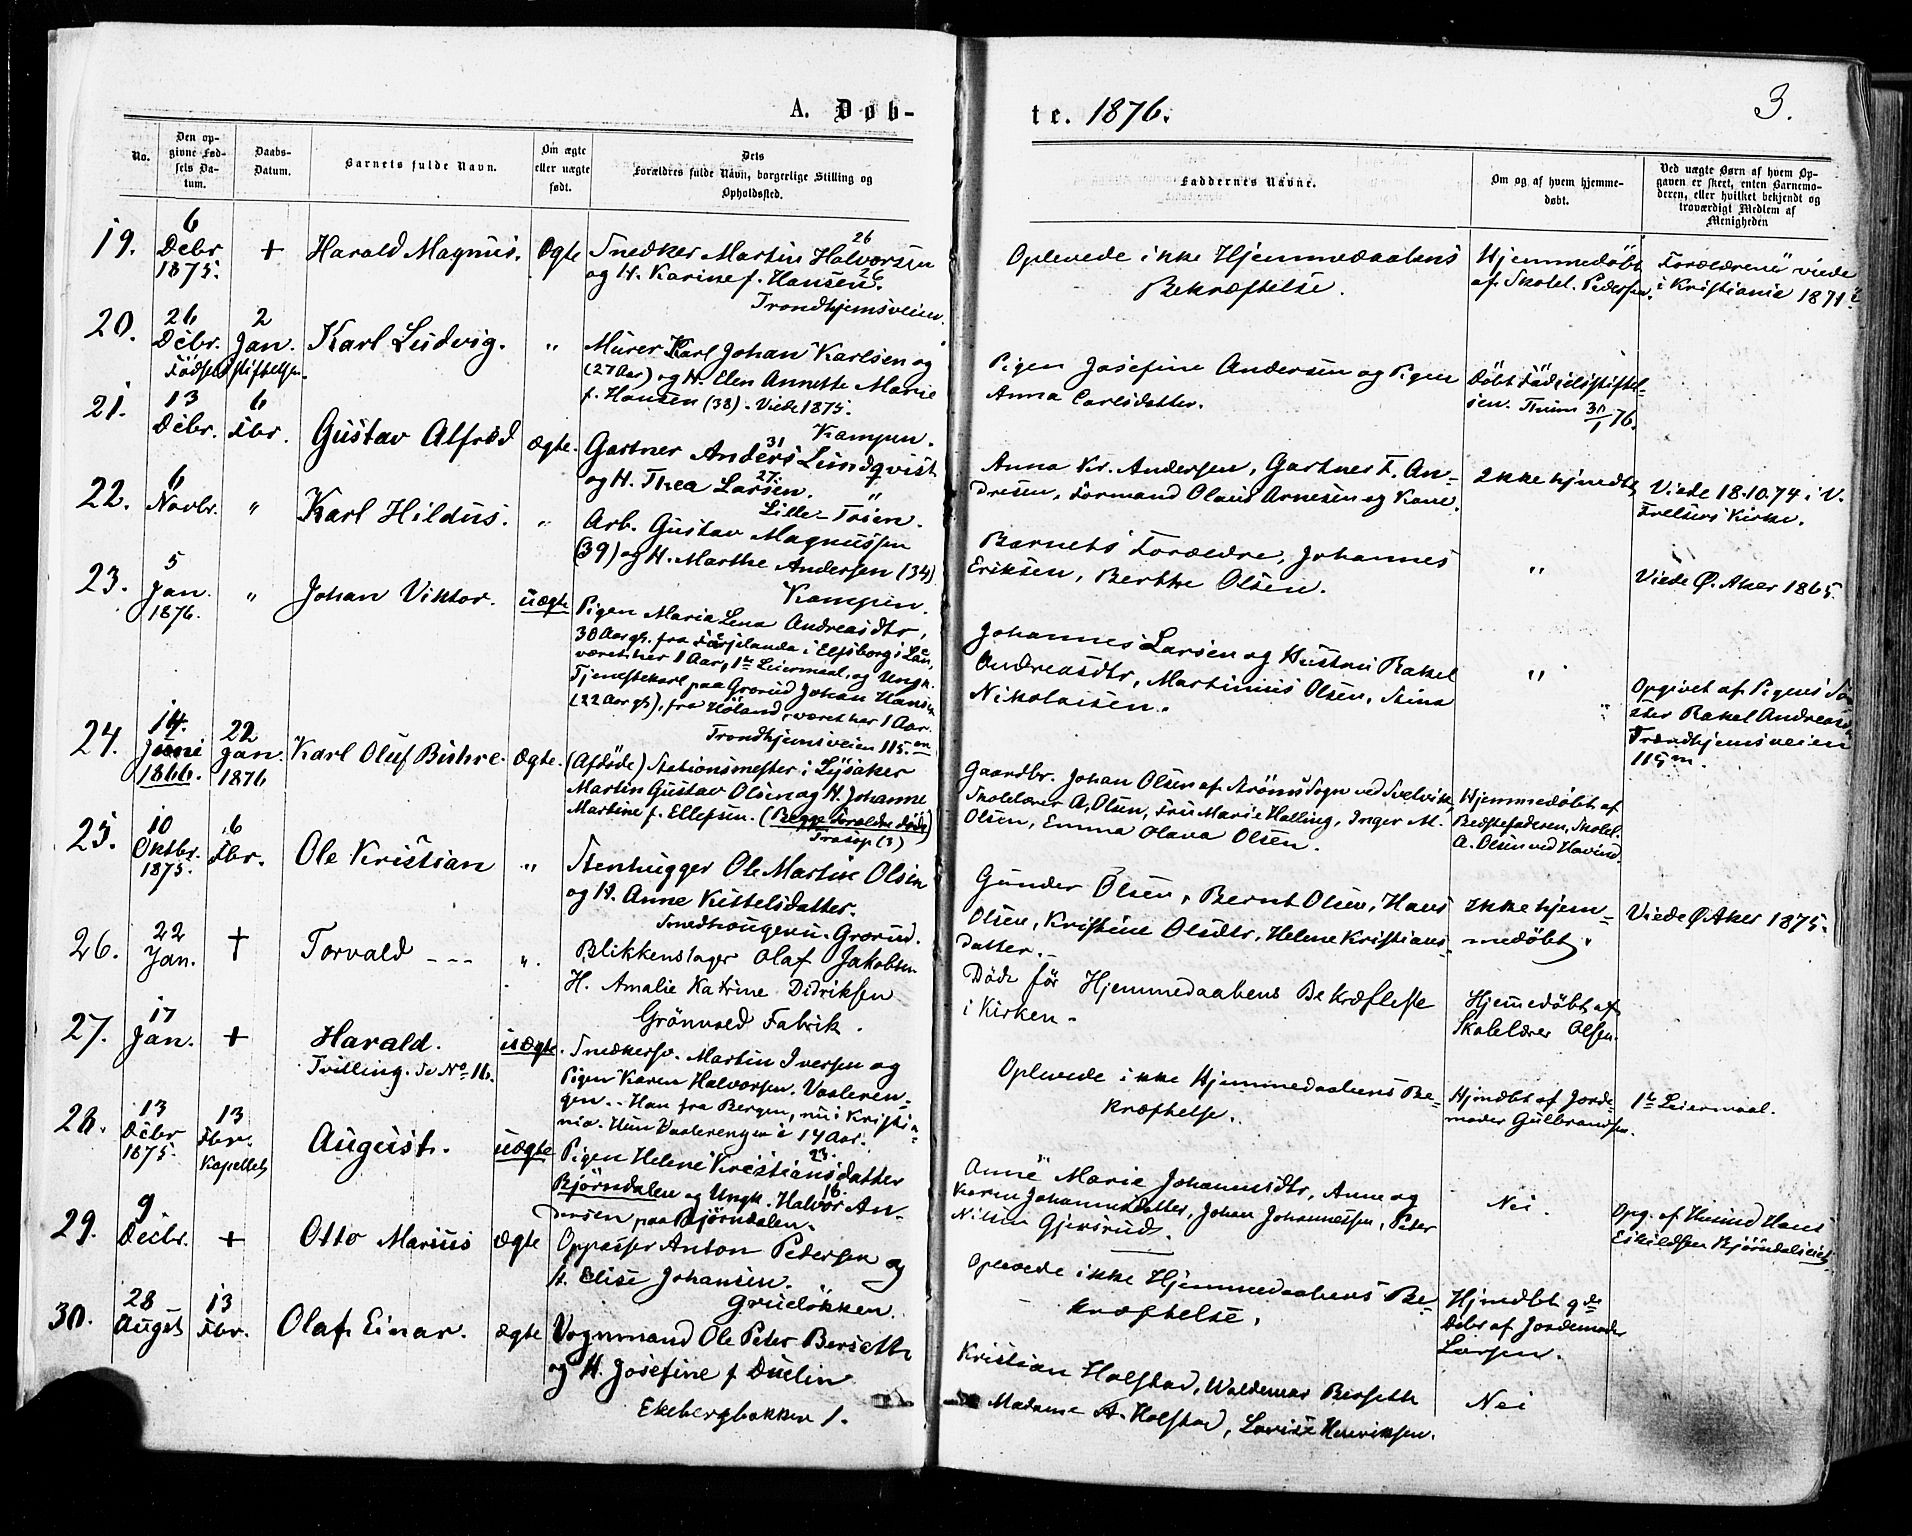 A. Døb-
te. 1876.
3.
No.
Den op-
givne Fød-
sels Da-
tum.
Daabs-
Datum.
Barnets fulde Navn.
Om ægte
eller uægte
født.
Dets
Forældres fulde Navn, borgerlige Stilling og
Opholdssted.
Faddernes Navne.
Om og af hvem hjemme-
døbt.
Ved uægte Børn af hvem Op-
gaven er skeet, enten Barnemo-
deren, eller hvilket bekjendt og
troværdigt Medlem af
Menigheden
19.
6
Debr.
1875.
+
Harald Magnus.
Ægte
26
Snedker Martin Halvorsen
26
og H. Karine f. Hansen.
Trondhjemsveien.
Oplevede ikke Hjemmedaabens
Bekræftelse.
Hjemmedöbt
af Skolel. Pedersen.
Forældrene viede
i Kristiania 1871
20.
26
Debr.
2
Jan.
Födselsstiftelsen.
Karl Ludvig.
"
Murer Karl Johan Karlsen og
(27 Aar) og H. Elen Annette Marie
f. Hansen (38). Viede 1875.
Kampen.
Pigen Josefine Andersen og Pigen
Anna Carlsdatter.
Döbt Födselsstiftel-
sen. Thim 30/1 76.
21.
13
Debr.
6
Fbr.
Gustav Alfred
ægte.
31
Gartner Anders Lundqvist
27.
og H. Thea Larsen. "
Lille-Töien.
Anna Kr. Andersen, Gartner F. An-
dresen, Formand Olaus Arnesen og Kone.
Ikke hjmdbt,
Viede 18.10.74 i V.
Frelsers Kirke.
22.
6
Novbr.
"
Karl Hildus.
"
Arb. Gustav Magnussen
(39) og H. Marthe Andersen (34)
Kampen.
Barnets Forældre, Johannes
Eriksen, Berthe Olsen.
"
Viede Ø. Aker 1865.
23.
5
Jan.
1876.
"
Johan Viktor.
uægte
Pigen Maria Lena Andreasdtr,
30 Aar gl. fra Färjelanda i Elfsborgs Län,
været her 1 Aar, 1te Leiermaal, og Ungk.
Tjenestekarl paa Grorud Johan Hansen
(22 Aar gl), fra Höland, været her 1 Aar.
Trondhjemsveien 115.m
Johannes Larsen og Hustru Rakel
Andreasdtr, Martinius Olsen, Stina
Nikolaisen.
"
Opgivet af Pigens Sö-
ster Rakel Andreasd
Trondhjemsveien
115m.
24.
14.
Juni
1866.
22
Jan.
1876
Karl Oluf Buhre.
Ægte.
(Afdöde) Stationsmester i Lysaker
Martin Gustav Olsen og H. Johanne
Martine f. Ellefsen. (Begge Forældre döde)
Gaardbr. Johan Olsen af Ströms Sogn ved Svelvik,
Skolelærer A. Olsen, Fru Marie Halling, Inger M.
Olsen, Emma Olava Olsen.
Hjemmedöbt af
Bedstefaderen, Skolel.
A. Olsen ved Havind.
25.
10
Oktbr.
1875.
6
Fbr.
Ole Kristian
"
Stenhugger Ole Martin Olsen
og H. Anne Kittelsdatter.
Smedhaugen u. Grorud.
Gunder Olsen, Bernt Olsen, Hans
Olsen, Kristine Olsdtr, Helene Kristians-
datter.
Ikke hjem-
medöbt.
Viede Ø. Aker 1875.
26.
22
Jan.
+
Torvald
"
Blikkenslager Olaf Jakobsen
H. Amalie Katrine Didriksen
Grönvold Fabrik.
Döde för Hjemmedaabens Bekræftelse
i Kirken.
Hjemmedöbt af
Skolelærer Olsen.
27.
17
Jan.
+
Harald.
Tvilling. Se No 16.
uægte.
Snedkersv. Martin Iversen og
Pigen Karen Halvorsen. Vaaleren-
gen. Han fra Bergen, nu i Kristia-
nia. Hun Vaalerengen i 14 Aar.
Oplevede ikke Hjemmedaabens Be-
kræftelse.
Hjmdbt af Jorde-
moder Gulbrandsen.
1te Leiermaal.
28.
13
Debr
1875.
13
Fbr.
Kapellet
August.
uægte
23.
Pigen Helene Kristiansdatter
Björndalen og Ungk. Halvor An-
dersen paa Björndalen.
Anne Marie Johannesdtr, Anne og
Karen Johannesdatter, Johan Johannessen, Peter
Nilsen Gjersrud.
Nei.
Opg. af Husmd Hans
Eskildsen Björndaleiet.
29.
9
Decbr.
+
Otto Marius
ægte
Oppasser Anton Pedersen og
H. Elise Johansen.
Gruelökken.
Oplevede ikke Hjemmedaabens Be-
kræftelse.
Hjmdbt 9de
Debr af Jordemoder
Larsen.
30.
28
August
13
Fbr.
Olaf Einar.
ægte
Vognmand Ole Peter Berseth
og H. Josefine f. Duelin
Ekebergbakken 1.
Kristian Holstad, Waldemar Berseth
Madame A. Holstad, Lovise Henriksen.
Nei